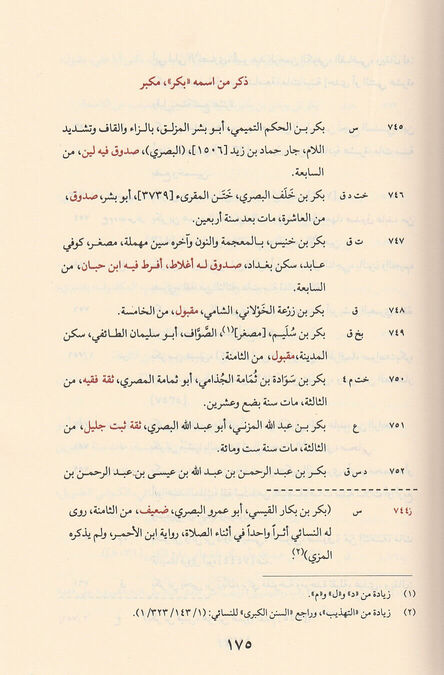 ذكر من اسمه «بكر»، مكبر
٧٤٥ س بكر بن الحكم التميمي، أبو بشر المزلق، بالزاء والقاف وتشديد
اللام، جار حماد بن زيد [١٥٠٦]، (البصري)، صدوق فيه لين، من
السابعة.
٧٤٦ خت د ق بكر بن خَلَف البصري، خَتَن المقرىء [٣٧٣٩]، أبو بشر، صدوق،
من العاشرة، مات بعد سنة أربعين.
٧٤٧ ت ق بكر بن خنيس، بالمعجمة والنون وآخره سين مهملة، مصغر، كوفي
عابد، سكن بغداد، صدوق له أغلاط، أفرط فيه ابن حبان، من
السابعة.
٧٤٨ ق بكر بن زرعة الخَوْلاني، الشامي، مقبول، من الخامسة.
٧٤٩ بخ ق بكر بن سُلَيم، [مصغر](١)، الصَّوَّاف، أبو سليمان الطائفي، سكن
المدينة، مقبول، من الثامنة.
٧٥٠ خت م ٤ بكر بن سَوَادة بن ثُمَامة الجُذامي، أبو ثمامة المصري، ثقة فقيه، من
الثالثة، مات سنة بضع وعشرين.
٧٥١ ع بكر بن عبد الله المزني، أبو عبد الله البصري، ثقة ثبت جليل، من
الثالثة، مات سنة ست ومائة.
٧٥٢ د س ق بكر بن عبد الرحمن بن عبد الله بن عيسى بن عبد الرحمن بن
ز٧٤٤ س (بكر بن بكار القيسي، أبو عمرو البصري، ضعيف، من الثامنة، روى
له النسائي أثراً واحداً في أثناء الصلاة، رواية ابن الأحمر، ولم يذكره
المزي)(٢).
(١) زيادة من «د» و«ل» و«م».
(٢) زيادة من «التهذيب»، وراجع «السنن الكبرى» للنسائي: (١/ ١٤٣/ ٣٢٣/ ١).
١٧٥